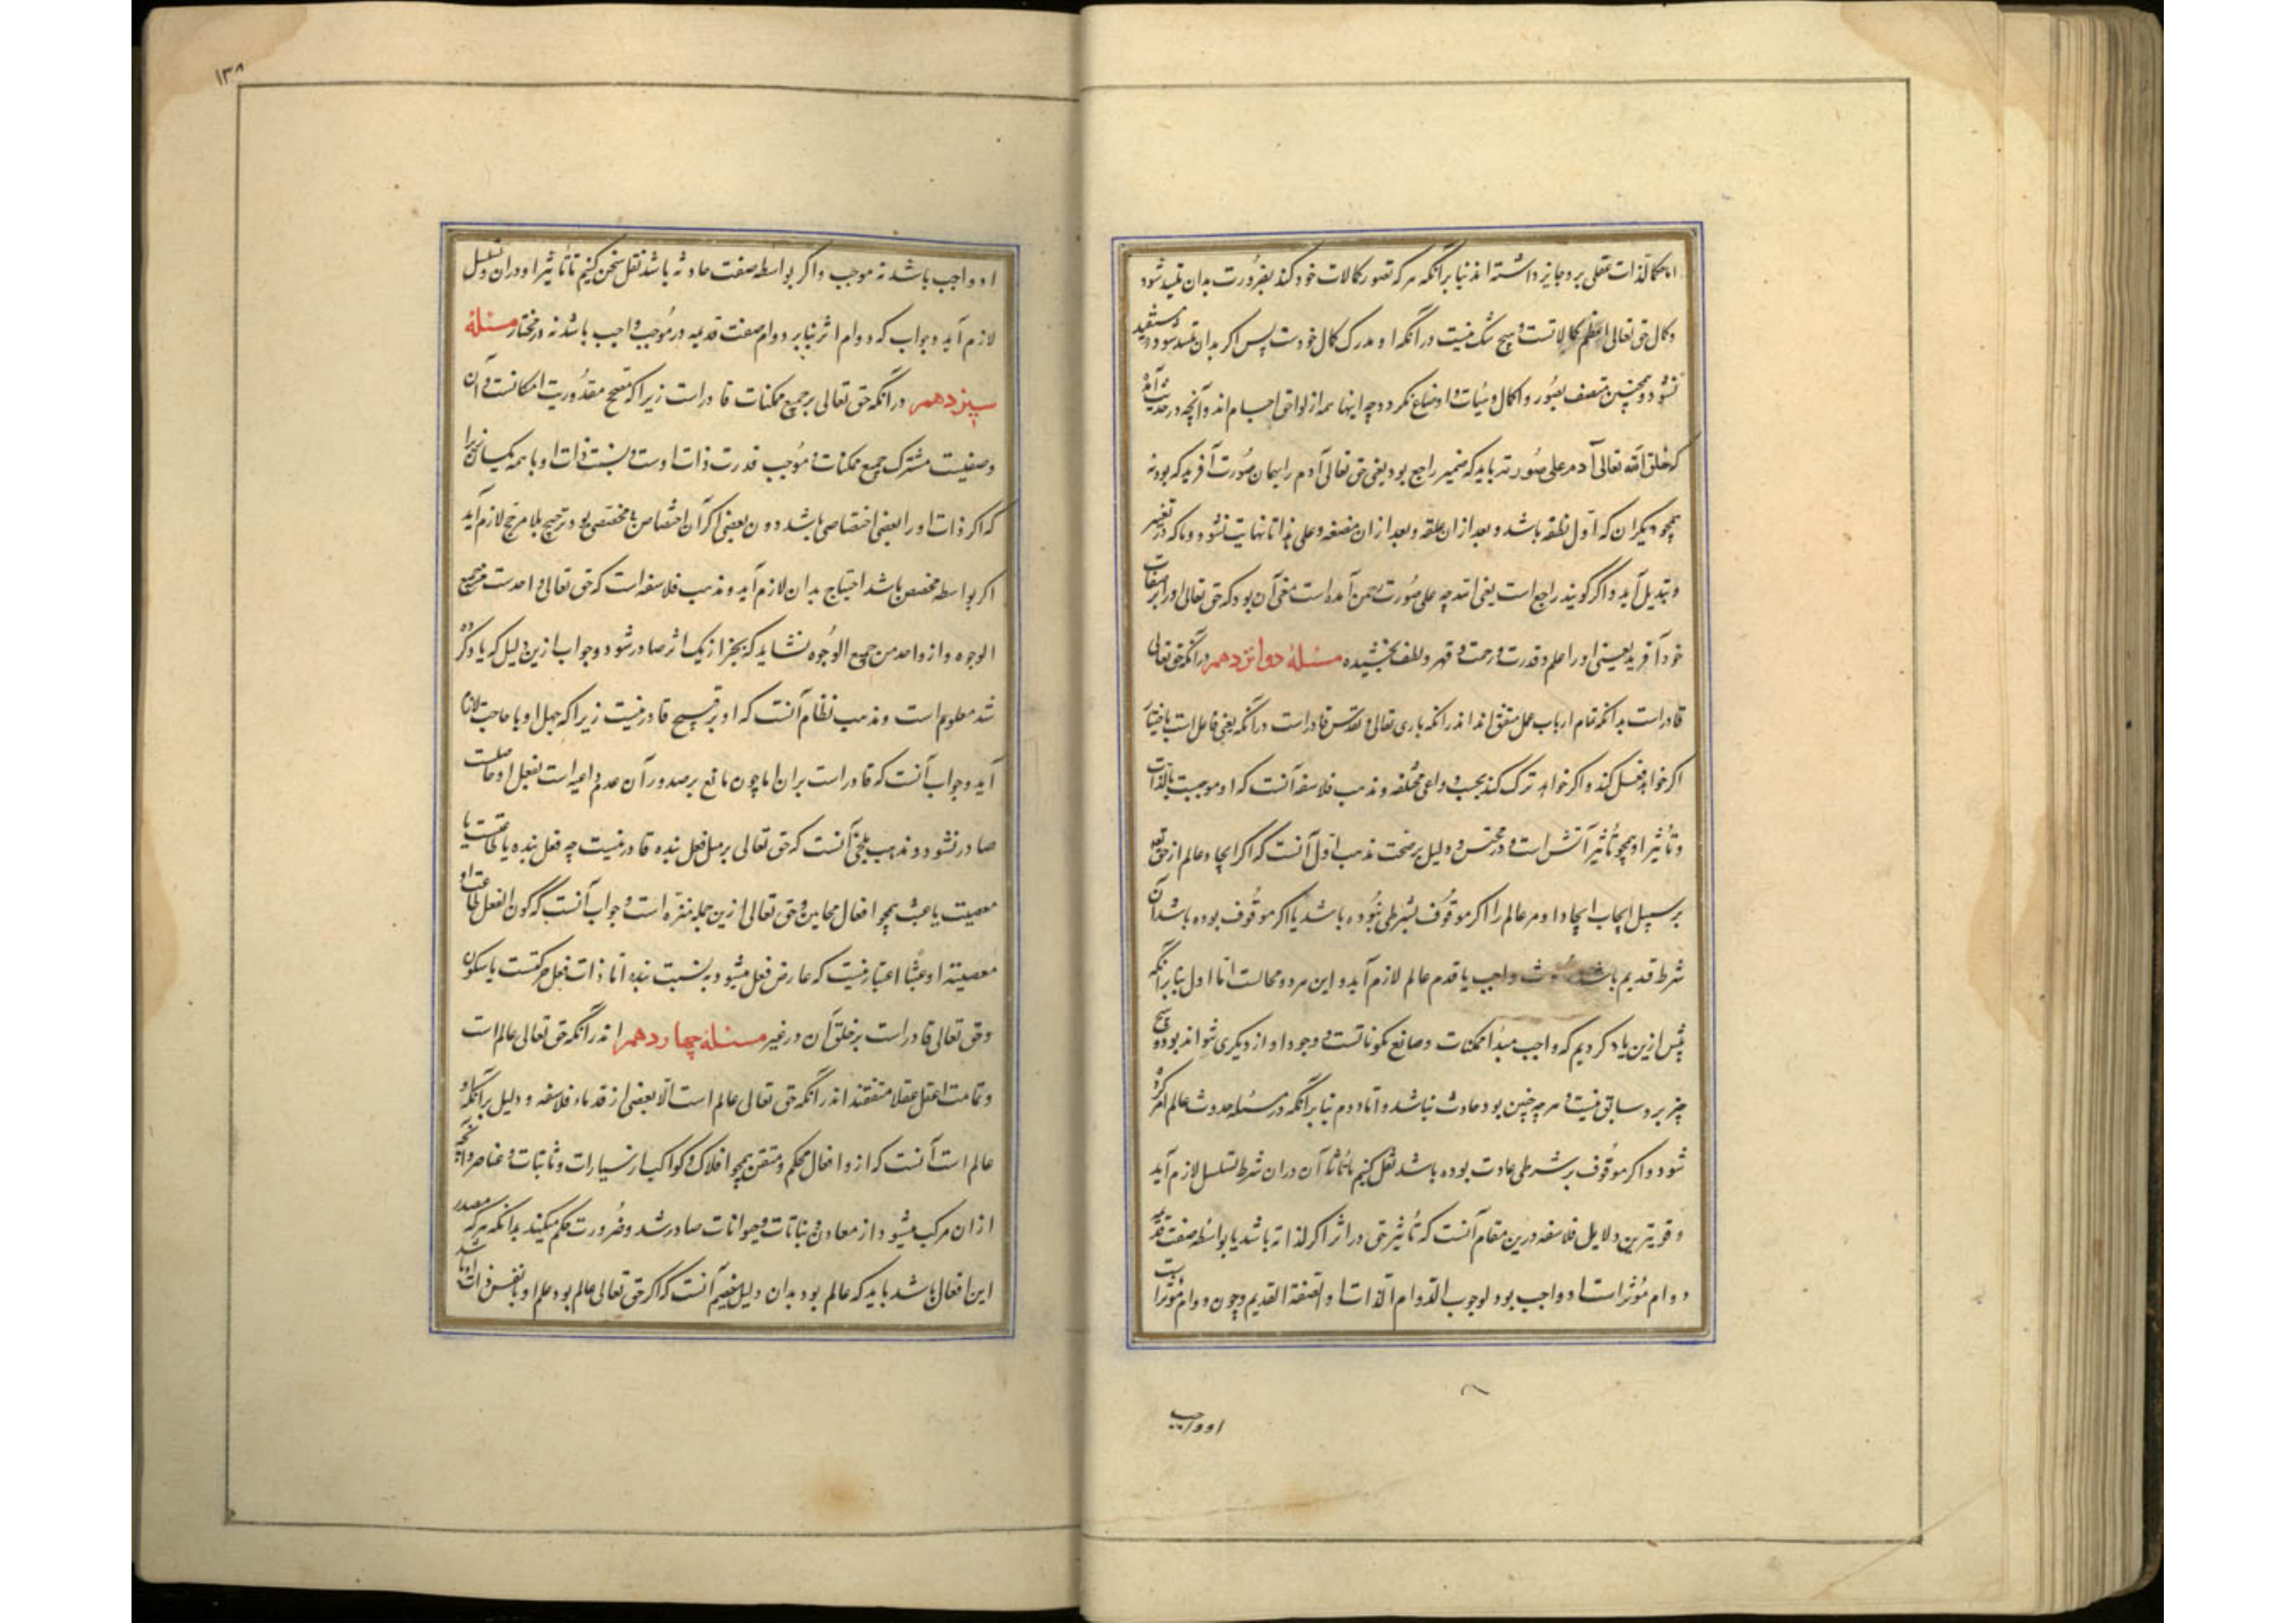 اما حکما لذات عقلی برو جایز داشته‌اند بنا برآنکه هرکه تصور کمالات خود کند بضرورت بدان متلذذ شود
و کمال حق تعالی اعظم کمالاتست و هیچ شک نیست درانکه او مدرک کمال خودست پس اگر بدان متلذذ شود مستبعد
نشود و همچنین متصف بصور و اشکال و هیئات و اوضاع نکردد چه اینها همه از لواحق اجسام‌اند و آنچه در حدیث آمده
که خلق الله تعالی آدم علی صورته باید که ضمیر راجع بود یعنی حق تعالی آدم را بهمان صورت آفرید که بود نه
همچو دیکران که اول نطفه باشد و بعد ازان علقه و بعد ازان مضغه و علی هذا تا نهایت نشو و نما که در تغییر
و تبدیل آید و اگر گویند راجع است یعنی الله چه علی صورت الرحمن آمده است معنی آن بود که حق تعالی او را بر صفات
خود آفرید یعنی او را علم و قدرت و رحمت و قهر و لطف بخشیده مسئلهٔ دوانزدهم درانکه حق تعالی
قادر است بدانکه تمام ارباب ملل متفق‌اند اندرانکه باری تعالی و تقدس قادر است درانکه یعنی فاعل است باختیار
اگر خواهد فعل کند و اگر خواهد ترک کند بحسب دواعی مختلفه و مذهب فلاسفه آنست که او موجبست بالذات
و تأثیر او همچو تأثیر آتش است و دلیل بر صحت مذهب اول آنست که اگر ایجاد عالم از حق تعالی
بر سبیل ایجاب ایجاد او مر عالم را اگر موقوف بشرطی نبوده باشد یا اگر موقوف بوده باشد آن
شرط قدیم باشد واجب یا قدم عالم لازم آید و این هر دو محالست اما اول بنا برآنکه
پیش ازین یاد کردیم که واجب مبدأ ممکنات و صانع مکوناتست و وجود او از دیکری نتواند بود و هیچ
چیز برو سابق نیست و هرچه چنین بود حادث نباشد و اما دوم بنا برآنکه در مسئلهٔ حدوث عالم ذکر کرده
شود و اگر موقوف بر شرطی حادث بوده باشد نقل کنیم با تأثیر آن دران شرط تسلسل لازم آید
و قویترین دلایل فلاسفه درین مقام آنست که تأثیر حق در اثر اگر لذاته باشد یا بواسطه صفت قدیمه
دوام مؤثر است او واجب بود لوجوب الدوام الذات و الصفة القدیم و چون دوام مؤثرات
او واجب
۱۳۸
او واجب باشد نه موجب و اگر بواسطه صفت حادثه باشد نقل سخن کنیم تا تأثیر او دران و تسلسل
لازم آید و جواب که دوام اثر بنا بر دوام صفت قدیمه در موجب واجب باشد نه در مختار مسئلهٔ
سیزدهم درانکه حق تعالی بر جمیع ممکنات قادر است زیرا که مصحح مقدوریت امکانست و آن
وصفیست مشترک جمیع ممکنات و موجب قدرت ذات اوست و نسبت ذات او با همه یکسان زیرا
که اگر ذات او را ببعضی اختصاصی باشد دون بعضی اگر آن اختصاص نه بمخصصی بود ترجیح بلا مرجح لازم آید
اگر بواسطه مخصص باشد احتیاج بدان لازم آید و مذهب فلاسفه است که حق تعالی واحدست من جمیع
الوجوه و از واحد من جمیع الوجوه نشاید که بجز از یک اثر صادر شود و جواب ازین دلیل که یاد کرده
شد معلوم است و مذهب نظام آنست که او بر قبیح قادر نیست زیرا که جهل او یا حاجت لازم
آید و جواب آنست که قادر است بران اما چون مانع بر صدور آن عدم داعیه است بفعل او
صادر نشود و مذهب بلخی آنست که حق تعالی بر مثل فعل بنده قادر نیست چه فعل بنده یا طاعتست یا
معصیت یا عبث همچو افعال مجانین و حق تعالی ازین جمله منزه است و جواب آنست که کون الفعل طاعت او
معصیتة او عبثا اعتباریست که عارض فعل میشود به نسبت بنده اما ذات فعل حرکتست یا سکون
و حق تعالی قادر است بر خلق آن در غیر مسئلهٔ چهاردهم اندرانکه حق تعالی عالم است
و تمامت عقلا متفقند اندرانکه حق تعالی عالم است الا بعضی از قدماء فلاسفه و دلیل برانکه او
عالم است آنست که ازو افعال محکم و متقن همچو افلاک و کواکب از سیارات و ثابتات و عناصر و آنچه
ازان مرکب میشود از معادن و نباتات و حیوانات صادر شد و ضرورت حکم میکند بدانکه هرکه مصدر
این افعال باشد باید که عالم بود بدان دلیل خصم آنست که اگر حق تعالی عالم بود علم او یا نفس ذات او باشد